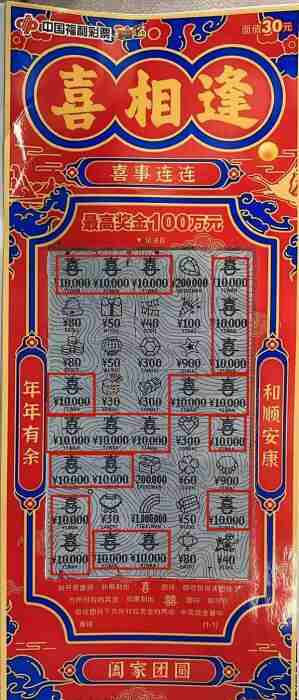 中国福利彩票
面值30元
喜相逢
喜事连连
最高奖金100万元
年年有余
和顺安康
喜 喜 喜 喜
¥10,000 ¥10,000 ¥10,000 ¥200,000 ¥10,000
喜
¥80 ¥50 ¥40 ¥100 ¥10,000
喜
¥80 ¥50 ¥300 ¥900 ¥10,000
喜 喜 喜
¥10,000 ¥30 ¥300 ¥10,000 ¥10,000
喜 喜 喜 喜
¥10,000 ¥10,000 ¥10,000 ¥300 ¥10,000
喜 喜
¥10,000 ¥10,000 ¥200,000 ¥60 ¥900
喜 喜
¥10,000 ¥30 ¥1,000,000 ¥50 ¥10,000
喜 喜 喜
¥10,000 ¥10,000 ¥10,000 ¥80 ¥40
刮开覆盖膜，如果刮出 喜 图符，即可获得该图符下
(1-1)
阖家团圆